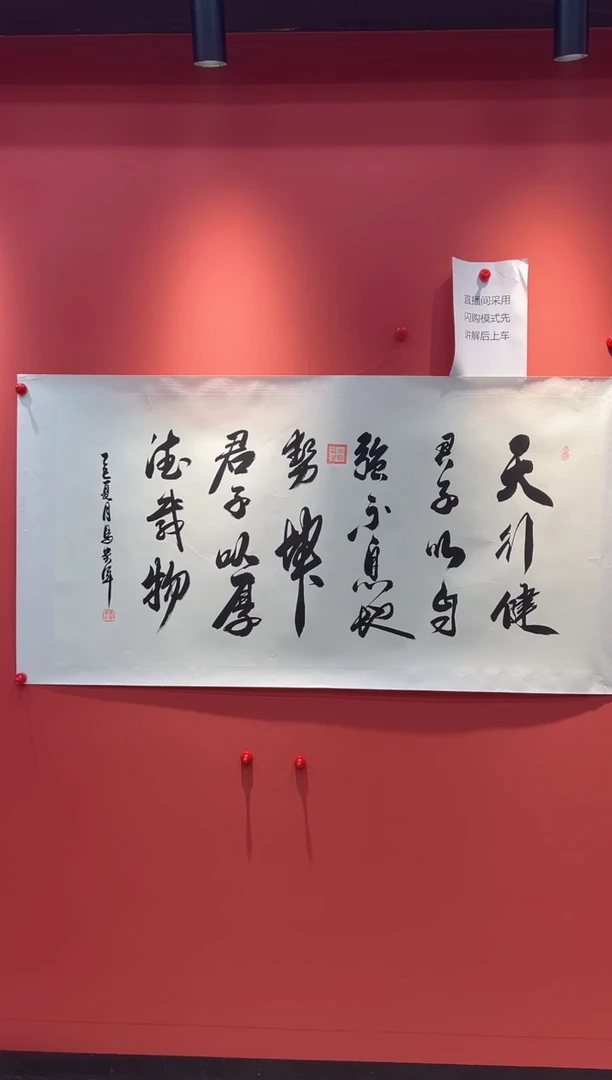 直播间采用
闪购模式先
讲解后上车
天行健
君子以自
强不息地
势坤
君子以厚
德载物
乙巳夏月马